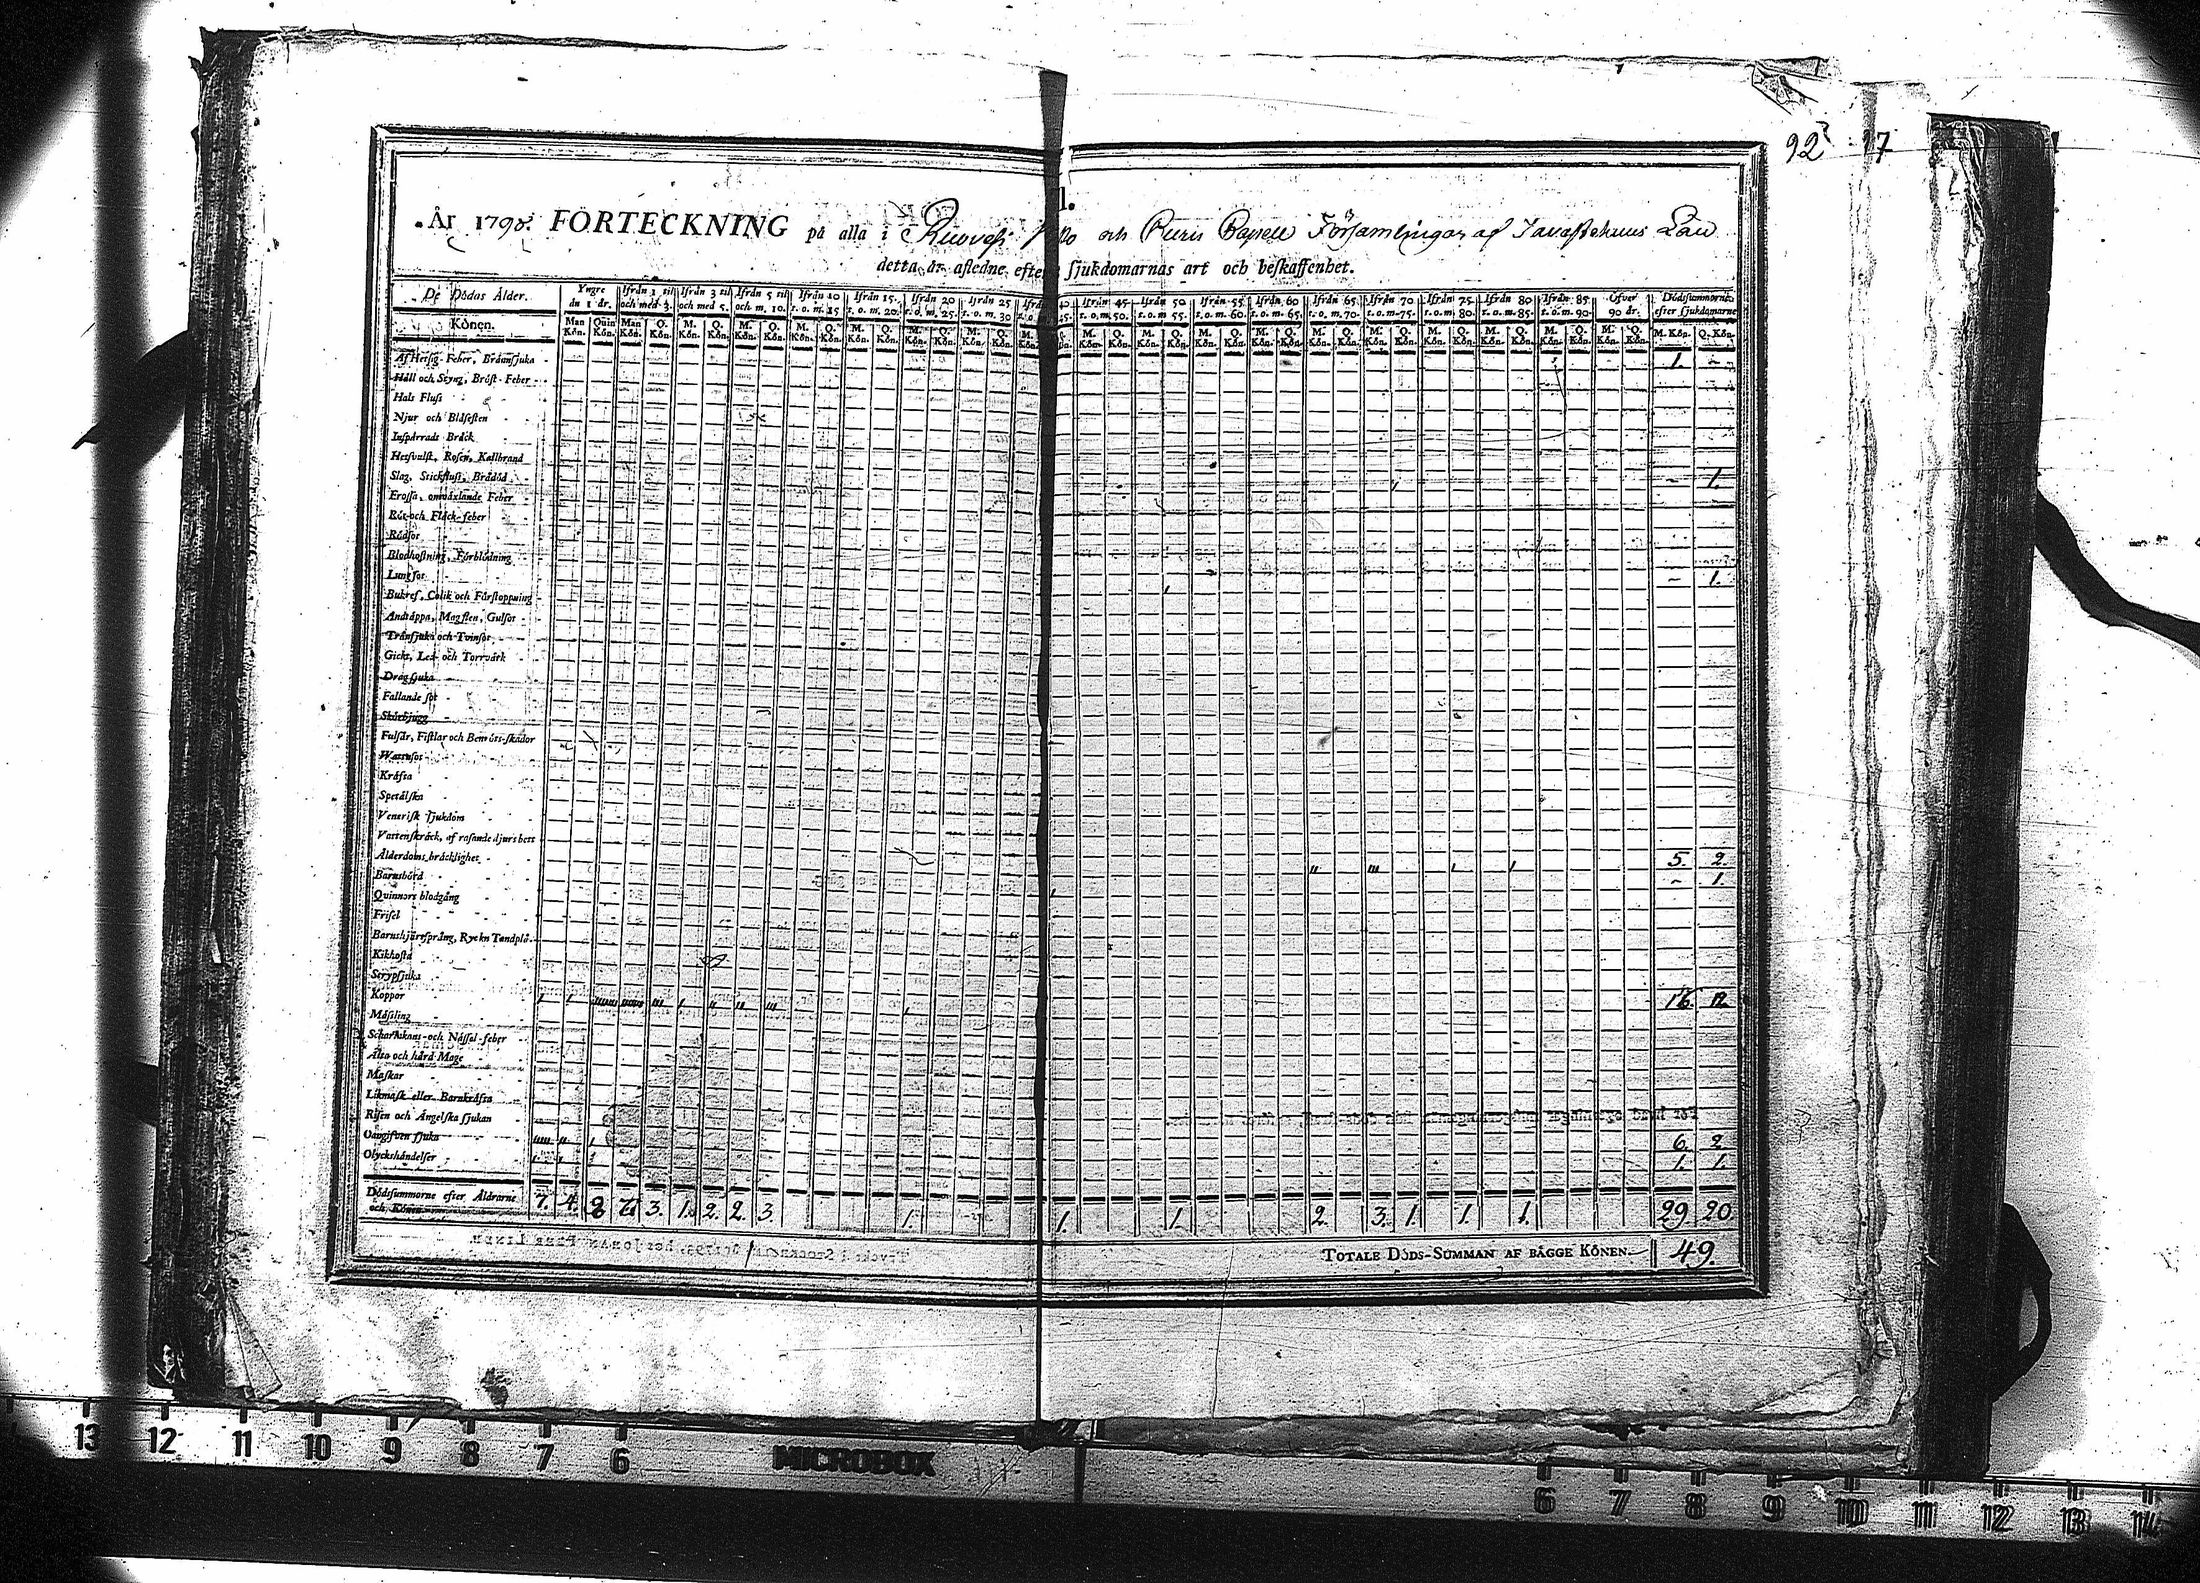 92 17
År 1798. FÖRTECKNING på alla i Ruovesi och Församlingar af Tavastehuus Län
detta år afledne, efter sjukdomarnas art och beskaffenhet.
De Dödas Ålder. Yngre än 1 år. Ifrån 1 til och med 3. Ifrån 3 til och med 5. Ifrån 5 til och m. 10. Ifrån 10 t. o. m. 15 Ifrån 15. t. o. m. 20. Ifrån 20 t. o. m. 25. Ifrån 25 t. o. m. 30 Ifrån 45 t. o. m. 50. Ifrån 50 t. o. m. 55. Ifrån 55 t. o. m. 60. Ifrån 60 t. o. m. 65. Ifrån 65. t. o. m. 70. Ifrån 70 t. o. m. 75. Ifrån 75 t. o. m. 80. Ifrån 80 t. o. m. 85. Ifrån 85. t. o. m. 90. Öfver 90 år. Dödssummorne efter sjukdomarne
Könen. Man Kön. Quin Kön. Man Kön. Q. Kön. M. Kön. Q. Kön. M. Kön. Q. Kön. M. Kön. Q. Kön.
Af Hetsig Feber, Brännsjuka 1. -
Håll och Styng, Bröst-Feber
Hals Fluss
Njur och Blåsesten
Inspärrade Bråck
Hetsvulst, Rosen, Kallbrand
Slag, Stickfluss, Brådöd - 1.
Frossa, omväxlande Feber
Röt-och Fläck-feber
Rödsot
Blodhostning, Förblödning
Lungsot - 1.
Bukref, Colik och Förstoppning
Andtäppa, Magsten, Gulsot
Trånsjuka och Tvinsot
Gickt, Led- och Torrvärk
Dragsjuka
Fallande sot
Skörbjugg
Fulsår, Fistlar och Benröts-skador
Wattusot
Kräfta
Spetälska
Venerisk sjukdom
Vattenskräck, af rasande djurs bett
Ålderdoms bräcklighet 5. 2.
Barnsbörd - 1.
Quinnors blodgång
Frisel
Barnshjärtsprång, Ryck
Kikhosta
Strypsjuka
Koppor 16 12
Mässling
Scharlakans-och Nässel-feber
Älta och hård Mage
Maskar
Likmask eller Barnkräfta
Risen och Ängelska sjukan
Oangifven sjuka 6. 2
Olyckshändelser 1. 1.
Dödssummorne efter Åldrarne och Könen 7. 4. 3. 1. 2. 2. 3. 1. 1. 1. 2. 3. 1. 1. 1. 29 20
TOTALE DÖDS-SUMMAN AF BÄGGE KÖNEN. 49.
13 12 11 10 9 8 7 6 MICROBOX 6 7 8 9 10 11 12 13 14